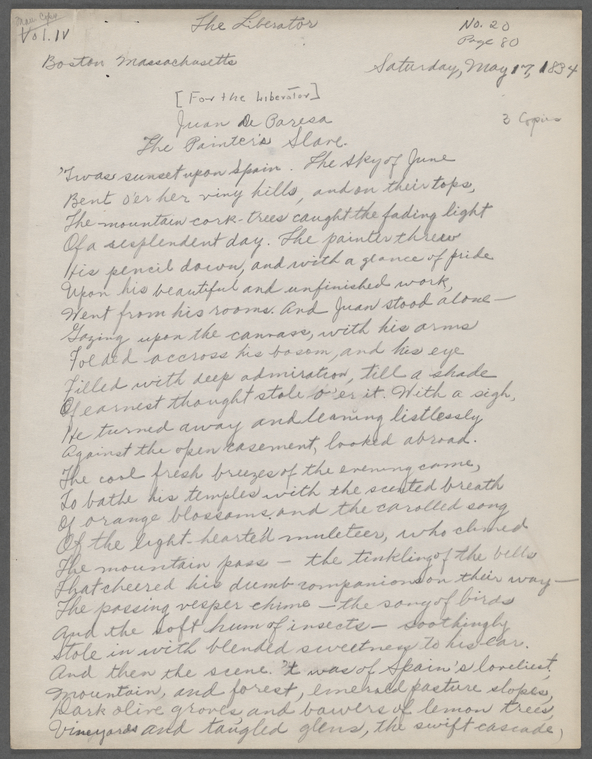 Man Cop
Vol. IV
The Liberator
No. 20
Page 80
Boston Massachusetts
Saturday, May 17, 1834
[For the Liberator]
2 Copies
Juan De Paresa
The Painter's Slave.
'Twas sunset upon Spain. The sky of June
Bent o'er her viny hills, and on their tops,
The mountain cork-trees caught the fading light
Of a resplendent day. The painter threw
His pencil down, and with a glance of pride
Upon his beautiful and unfinished work,
Went from his rooms. And Juan stood alone—
Gazing upon the canvass, with his arms
Folded accross his bosom, and his eye
Filled with deep admiration, till a shade
Of earnest thought stole o'er it. With a sigh,
He turned away and leaning listlessly
Against the open casement, looked abroad.
The cool fresh breezes of the evening came,
To bathe his temples with the scented breath
Of orange blossoms, and the carolled song
Of the light-hearted muleteer, who climed
The mountain pass — the tinkling of the bells
That cheered his dumb companions on their way—
The passing vesper chime — the song of birds
And the soft hum of insects — soothingly
Stole in with blended sweetness to his ear.
And then the scene. 't was of Spain's loveliest,
Mountain, and forest, emerald pasture slopes,
Dark olive groves, and bowers of lemon trees,
Vineyards and tangled glens, the swift cascade,